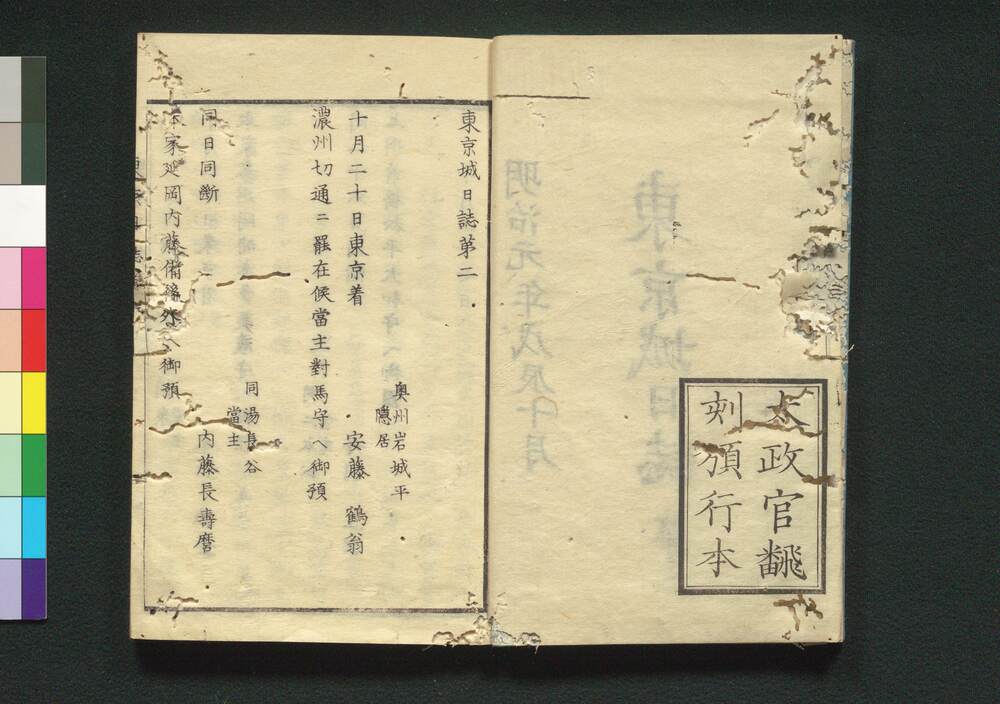 太政官飜
刻頒行本
東京城日誌第二
奥州岩城平
隠居
十月二十日東京着
安藤鶴翁
濃州切通ニ罷在候當主對馬守へ御預
同湯長谷
當主
同日同斷
内藤長壽麿
家延岡内藤備後外へ御預